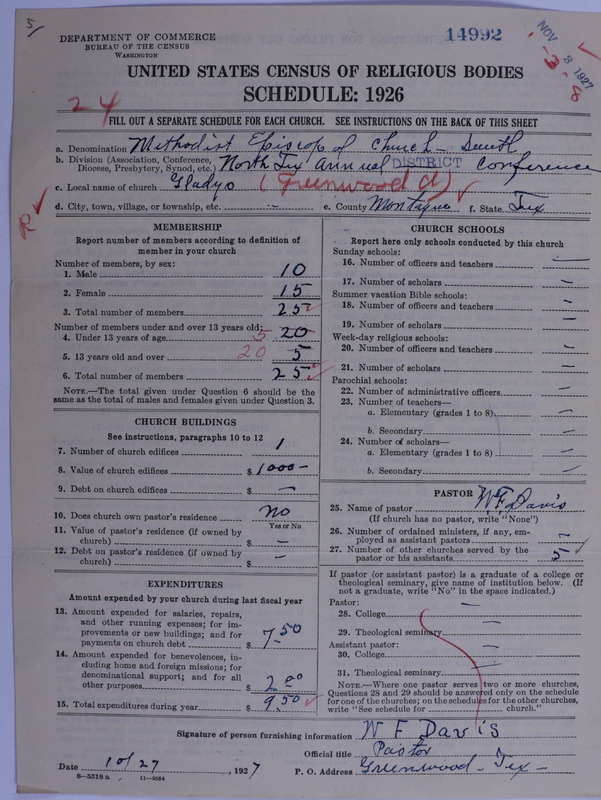 5
DEPARTMENT OF COMMERCE
BUREAU OF THE CENSUS
WASHINGTON
14992
NOV 3 1927
-3-8
UNITED STATES CENSUS OF RELIGIOUS BODIES
SCHEDULE: 1926
24
FILL OUT A SEPARATE SCHEDULE FOR EACH CHURCH. SEE INSTRUCTIONS ON THE BACK OF THIS SHEET
a. Denomination Methodist Episcopol Church - South
b. Division (Association, Conference, Diocese, Presbytery, Synod, etc.) North Tex Annual DISTRICT Conference
c. Local name of church Gladys (Greenwood d)
d. City, town, village, or township, etc. - e. County Montague f. State Tex
R
MEMBERSHIP
Report number of members according to definition of
member in your church
Number of members, by sex:
1. Male 10
2. Female 15
3. Total number of members 25
Number of members under and over 13 years old:
4. Under 13 years of age 5 20
5. 13 years old and over 20 5
6. Total number of members 25
NOTE.—The total given under Question 6 should be
same as the total of males and females given under Question 3.
CHURCH BUILDINGS
See instructions, paragraphs 10 to 12
7. Number of church edifices 1
8. Value of church edifices $ 1000-
9. Debt on church edifices $ —
10. Does church own pastor's residence no
Yes or No
11. Value of pastor's residence (if owned by
church) $ —
12. Debt on pastor's residence (if owned by
church) $ —
EXPENDITURES
Amount expended by your church during last fiscal year
13. Amount expended for salaries, repairs,
and other running expenses; for im-
provements or new buildings; and for
payments on church debt $ 7.50
14. Amount expended for benevolences, in-
cluding home and foreign missions; for
denominational support; and for all
other purposes $ 2.00
15. Total expenditures during year $ 9.50
CHURCH SCHOOLS
Report here only schools conducted by this church
Sunday schools:
16. Number of officers and teachers —
17. Number of scholars —
Summer vacation Bible schools:
18. Number of officers and teachers —
19. Number of scholars —
Week-day religious schools:
20. Number of officers and teachers —
21. Number of scholars —
Parochial schools:
22. Number of administrative officers —
23. Number of teachers—
a. Elementary (grades 1 to 8) —
b. Secondary —
24. Number of scholars—
a. Elementary (grades 1 to 8) —
b. Secondary —
PASTOR
25. Name of pastor W F Davis
(If church has no pastor, write "None")
26. Number of ordained ministers, if any, em-
ployed as assistant pastors —
27. Number of other churches served by the
pastor or his assistants 5
If pastor (or assistant pastor) is a graduate of a college or
theological seminary, give name of institution below. (If
not a graduate, write "No" in the space indicated.)
Pastor:
28. College —
29. Theological seminary —
Assistant pastor:
30. College —
31. Theological seminary —
NOTE.—Where one pastor serves two or more churches,
Questions 28 and 29 should be answered only on the schedule
for one of the churches; on the schedules for the other churches,
write "See schedule for church."
Signature of person furnishing information W F Davis
Official title Pastor
Date 10/27, 1927 P. O. Address Greenwood - Tex -
8-5318a 11-9084